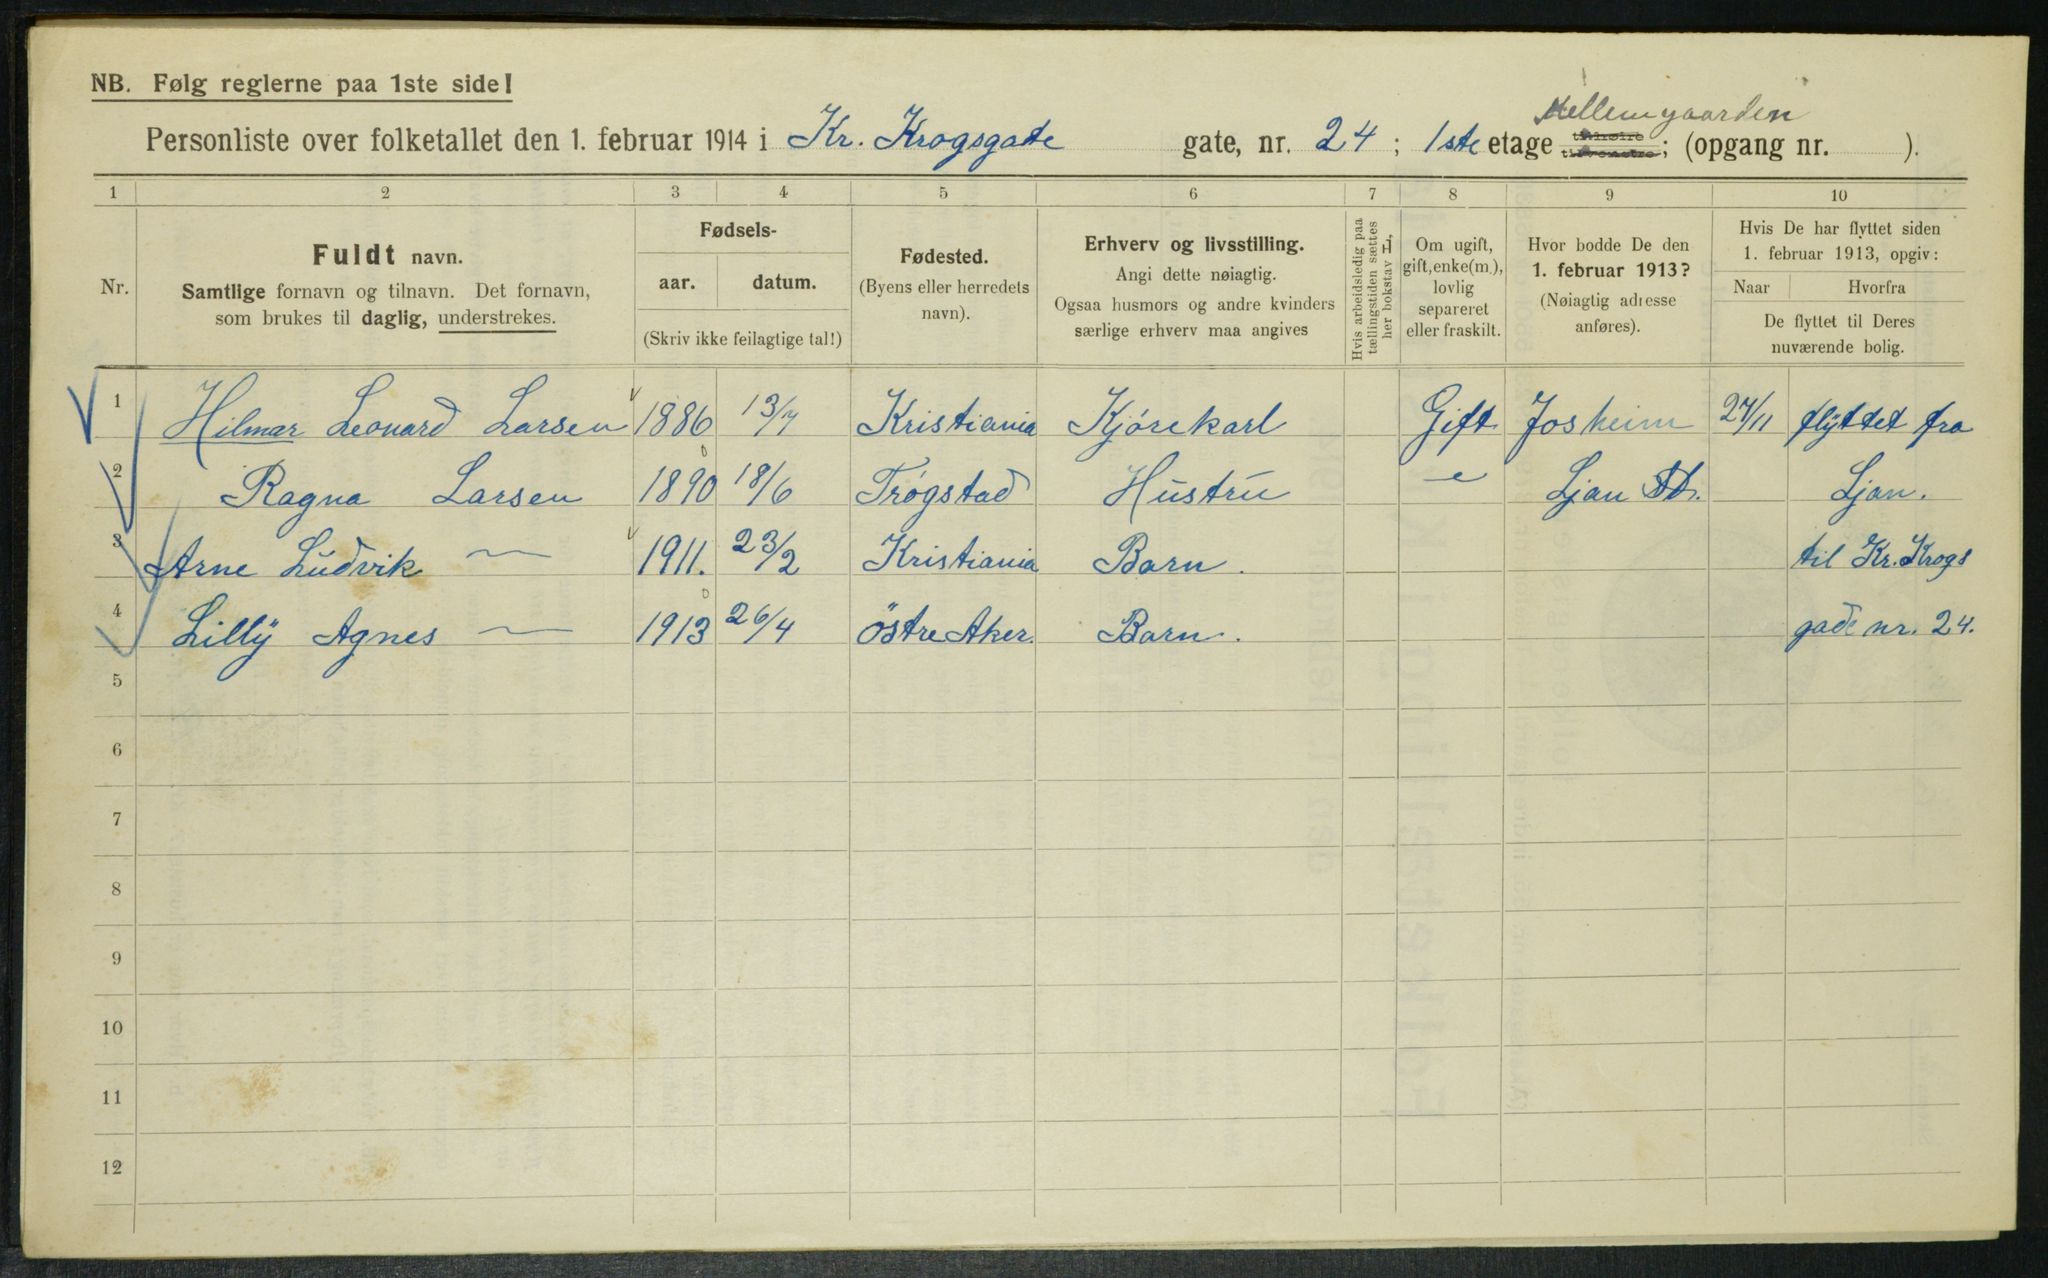 NB. Følg reglerne paa 1ste side!
Mellemgaarden
Personliste over folketallet den 1. februar 1914 i Kr. Krogsgate gate, nr. 24; 1ste etage tilhøire tilvenstre; (opgang nr. ).
1 2 3 4 5 6 7 8 9 10
Nr.
Fuldt navn.
Samtlige fornavn og tilnavn. Det fornavn,
som brukes til daglig, understrekes.
Fødsels-
aar. datum.
(Skriv ikke feilagtige tal!)
Fødested.
(Byens eller herredets
navn).
Erhverv og livsstilling.
Angi dette nøiagtig.
Ogsaa husmors og andre kvinders
særlige erhverv maa angives
Hvis arbeidsledig paa
tællingstiden sættes
her bokstav H,
Om ugift,
gift, enke(m.),
lovlig
separeret
eller fraskilt.
Hvor bodde De den
1. februar 1913?
(Nøiagtig adresse
anføres).
Hvis De har flyttet siden
1. februar 1913, opgiv:
Naar Hvorfra
De flyttet til Deres
nuværende bolig.
1 Hilmar Leonard Larsen 1886 13/7 Kristiania Kjørekarl Gift Josheim 27/11 flyttet fra
2 Ragna Larsen 1890 18/6 Trøgstad Hustru Ljan Ljan.
3 Arne Ludvik — 1911. 23/2 Kristiania Barn. til Kr. Krogs
4 Lilly Agnes — 1913 26/4 østre Aker. Barn. gade nr. 24.
5
6
7
8
9
10
11
12